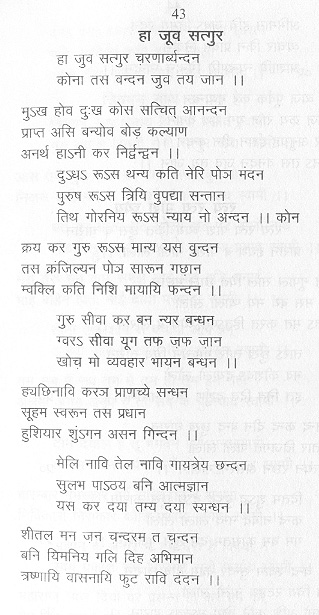 43
हा जूव सत्गुर
हा जुव सत्गुर चरणार्ब्यन्दन
कोना तस वन्दन जुव तय जान ।।
मुऽख होव दुःख कोस सत्चित् आनन्दन
प्राप्त असि बन्योव बोड़ कल्याण
अनर्थ हाऽनी कर निर्द्वन्द्वन ।।
दुऽधऽ रूऽस थन्य कति नेरि पोञ मंदन
पुरुष रूऽस त्रियि वुपद्या सन्तान
तिथ गोरनिय रूऽस न्याय नो अन्दन ।। कोन
क्रय कर गुरू रूऽस मान्य यस वुन्दन
तस क्रंजिल्यन पोञ सारून गछ़ान
म्वक्लि कति निशि मायायि फन्दन ।।
गुरू सीवा कर बन न्यर बन्धन
ग्वरऽ सीवा यूग तफ ज़फ ज़ान
खोच़ मो व्यवहार भायन बन्धन ।।
ह्यछिनावि करञ प्राणच्ये सन्धन
सूहम स्वरून तस प्रधान
हुशियार शुंऽगन असन गिन्दन ।।
मेलि नावि तेल नावि गायत्रेय छन्दन
सुलभ पाऽठय बनि आत्मज्ञान
यस कर दया तम्य दया स्यन्धन ।।
शीतल मन ज़न च़न्दरम त च़न्दन
बनि यिमनिय गलि दिह अभिमान
त्रष्णायि वासनायि फुट रावि ददन ।।